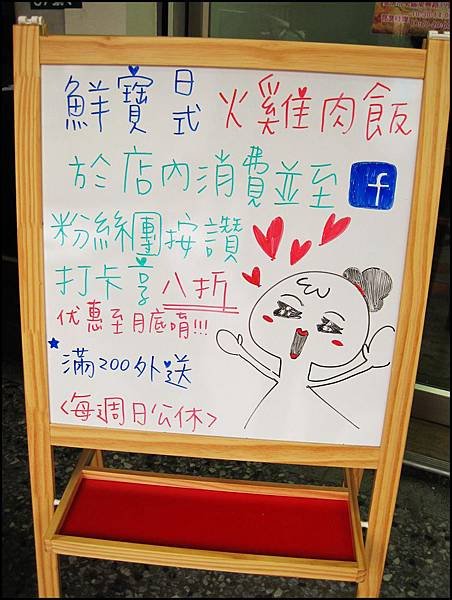 鮮寶 日式 火雞肉飯
於店內消費並至 f
粉絲團按讚
打卡享八折
优惠至月底唷!!!
滿200外送
<每週日公休>